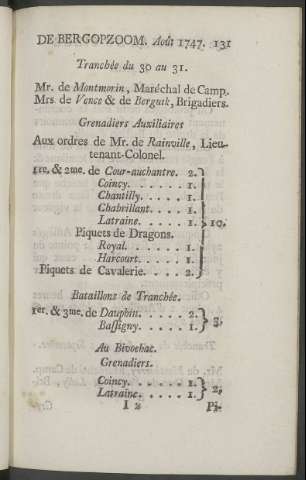 DE BERGOPZOOM. Août 1747. 131
Tranchée du 30 au 31.
Mr. de Montmorin, Maréchal de Camp.
Mrs de Vence & de Bergutk, Brigadiers.
Grenadiers Auxiliaires
Aux ordres de Mr. de Rainville, Lieu-
tenant-Colonel.
1re. & 2me. de Cour-auchantre. 2.
Coincy. . . . . . 1.
Chantilly. . . . . 1.
Chabrillant. . . . 1.
Latraine. . . . . 1. 10.
Piquets de Dragons.
Royal. . . . . . 1.
Harcourt. . . . . 1.
Piquets de Cavalerie. . . . 2.
Bataillons de Tranchée.
1er. & 3me. de Dauphin. . . . . 2.
Bassigny. . . . . 1. 3.
Au Bivoehac.
Grenadiers.
Coincy. . . . . . 1.
Latraine. . . . . 1. 2;
I 2 Pi-